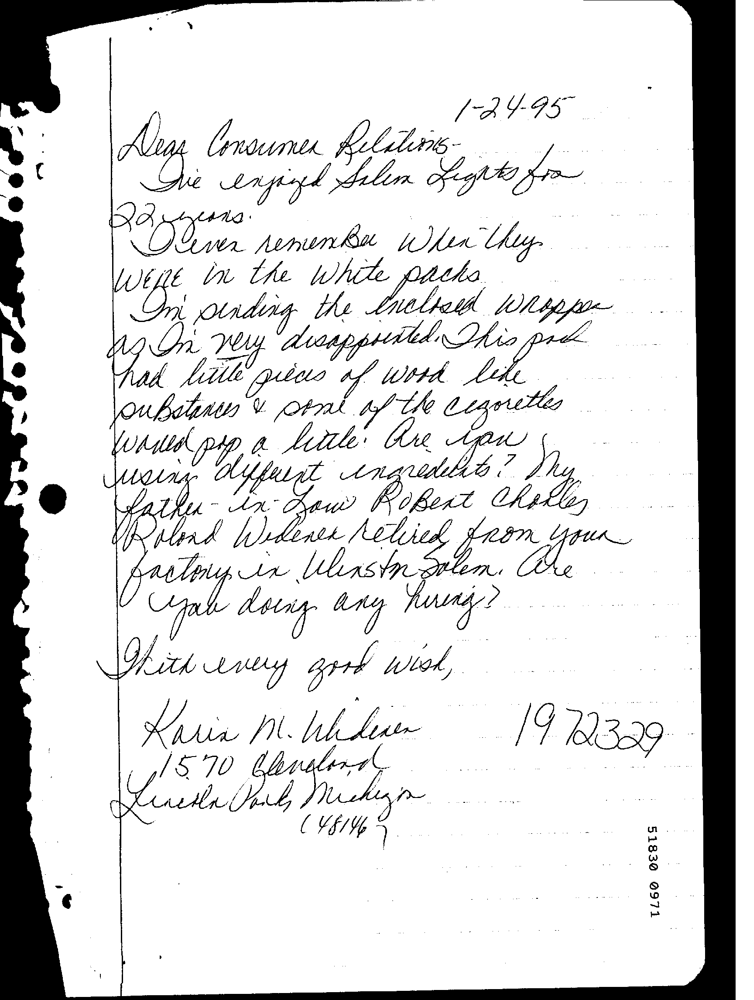 1-24-95
Dear Consumer Relations-
I've enjoyed Salem Lights for
22 years.
I even remember when they
WERE in the white packs
I'm sending the enclosed wrapper
as I'm very disappointed. This pack
had little pieces of wood like
substances & some of the cigarettes
would pop a little. Are you
using different ingredients? My
father-in-Law Robert Charles
Roland Widener retired from your
factory in Winston Salem. Are
you doing any hiring?
With every good wish,
Karin M. Widener
1972329
1570 Cleveland
Lincoln Park, Michigan
(48146)
51830 0971